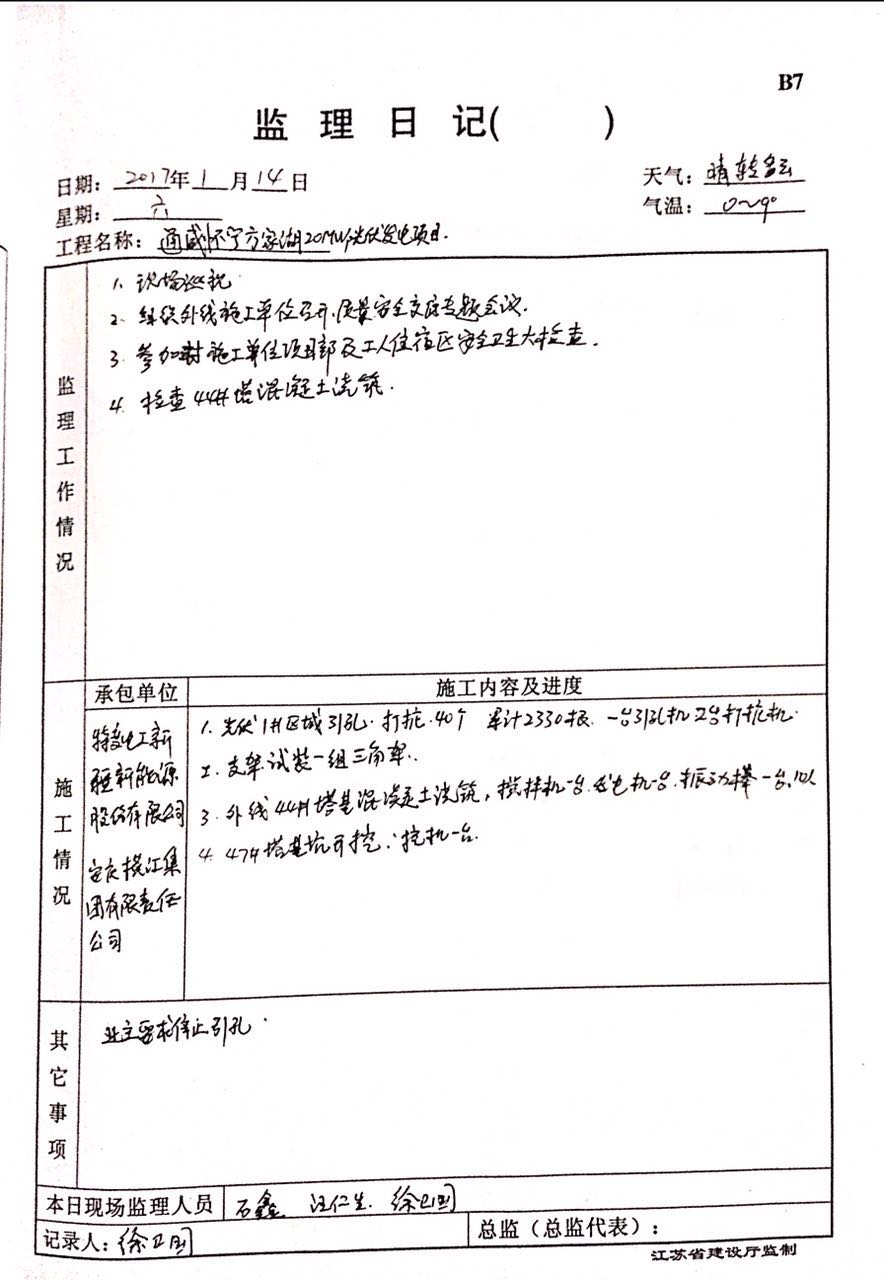 B7
监 理 日 记( )
日期: 2017年 1 月 14 日
天气: 晴转多云
星期: 六
气温: 0~9°
工程名称: 通威怀宁方家湖20MW光伏发电项目.
监理工作情况
1. 现场巡视.
2. 组织外线施工单位召开质量安全交底专题会议.
3. 参加对施工单位项目部及工人住宿区安全卫生大检查.
4. 检查44#塔混凝土浇筑.
承包单位
施工内容及进度
施工情况
特变电工新
疆新能源
股份有限公司
安庆横江集
团有限责任
公司
1. 光伏1#区域引孔. 打桩. 40个 累计2330根. 一台引孔机 四台打桩机.
2. 支架试装一组三角架.
3. 外线44#塔基混凝土浇筑, 搅拌机一台.发电机一台.振动棒一台.10人
4. 47#塔基坑开挖. 挖机一台.
其它事项
业主要求停止引孔.
本日现场监理人员
石鑫 汪仁生. 徐卫国
记录人: 徐卫国
总监（总监代表）:
江苏省建设厅监制